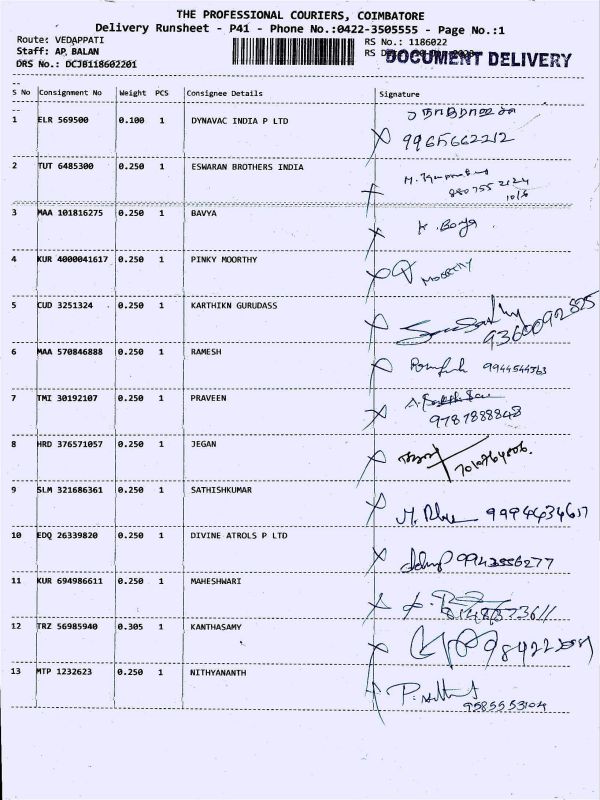 THE PROFESSIONAL COURIERS, COIMBATORE
Delivery Runsheet - P41 - Phone No.:0422-3505555 - Page No.:1
Route: VEDAPPATI
RS No.: 1186022
Staff: AP, BALAN
RS
DOCUMENT DELIVERY
DRS No.: DCJB118602201
S No Consignment No Weight PCS Consignee Details Signature
1 ELR 569500 0.100 1 DYNAVAC INDIA P LTD
9965662212
2 TUT 6485300 0.250 1 ESWARAN BROTHERS INDIA
3 MAA 101816275 0.250 1 BAVYA
4 KUR 4000041617 0.250 1 PINKY MOORTHY
MOORTHY
5 CUD 3251324 0.250 1 KARTHIKN GURUDASS
9360092825
6 MAA 570846888 0.250 1 RAMESH
9944544363
7 TMI 30192107 0.250 1 PRAVEEN
9787888848
8 HRD 376571057 0.250 1 JEGAN
9 SLM 321686361 0.250 1 SATHISHKUMAR
9994634617
10 EDQ 26339820 0.250 1 DIVINE ATROLS P LTD
9942556277
11 KUR 694986611 0.250 1 MAHESHWARI
12 TRZ 56985940 0.305 1 KANTHASAMY
13 MTP 1232623 0.250 1 NITHYANANTH
9585553104